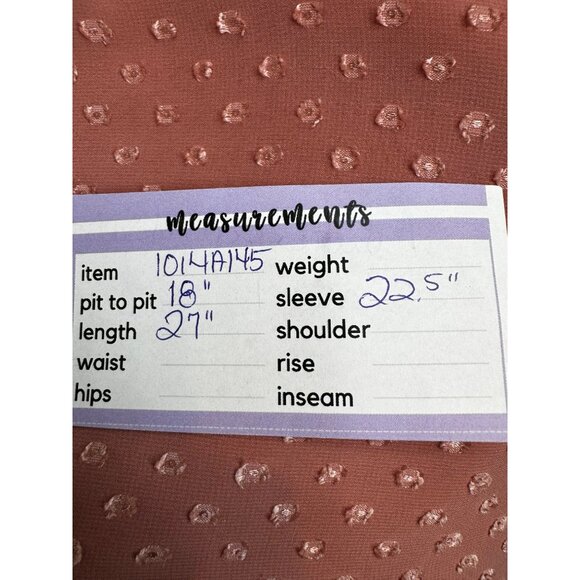 measurements
item 1014A145 weight
pit to pit 18" sleeve 22.5"
length 27" shoulder
waist rise
hips inseam